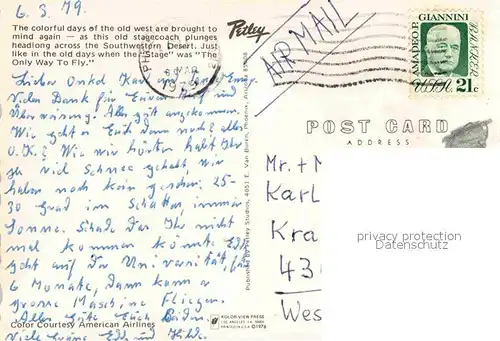 6.3.79.
The colorful days of the old west are brought to
mind again — as this old stagecoach plunges
headlong across the Southwestern Desert. Just
like in the old days when the "Stage" was "The
Only Way To Fly."
Lieber Onkel Karl
Vielen Dank für Euren und
Überweisung. Alles gut angekommen.
Wie geht's Euch denn noch alles
O.K.? Wie wir hörten habt Ihr
so viel Schnee gehabt, wir
haben noch kein gesehen. 25-
30 Grad im Schatten, immer
Sonne. Schade das Ihr nicht
mal kommen könnte. Edd
geht auf der Universität, für
6 Monate, Dann kann er
grosse Maschine Fliegen.
Alles Gute Euch Beiden.
Viele Grüsse Edd und Hilde.
Color Courtesy American Airlines
Petley
AIR MAIL
AMADEO P. GIANNINI
BANKER
USA 21c
POST CARD
ADDRESS
Mr. +
Karl
Kra
43
Wes
privacy protection
Datenschutz
Published by Petley Studios, 4051 E. Van Buren, Phoenix,
KOLOR VIEW PRESS
LOS ANGELES, CA.
PRINTED IN U.S.A. ©1976